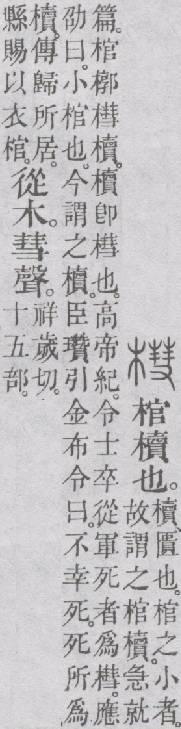 槥 棺櫝也。
櫝、匱也。棺之小者。
故謂之棺櫝。急就
篇。棺槨槥櫝。櫝卽槥也。高帝紀。令士卒從軍死者爲槥。應
劭曰。小棺也。今謂之櫝。臣瓚引金布令曰。不幸死。死所爲
櫝。傳歸所居。
縣賜以衣棺。
從木。彗聲。
祥歲切。
十五部。